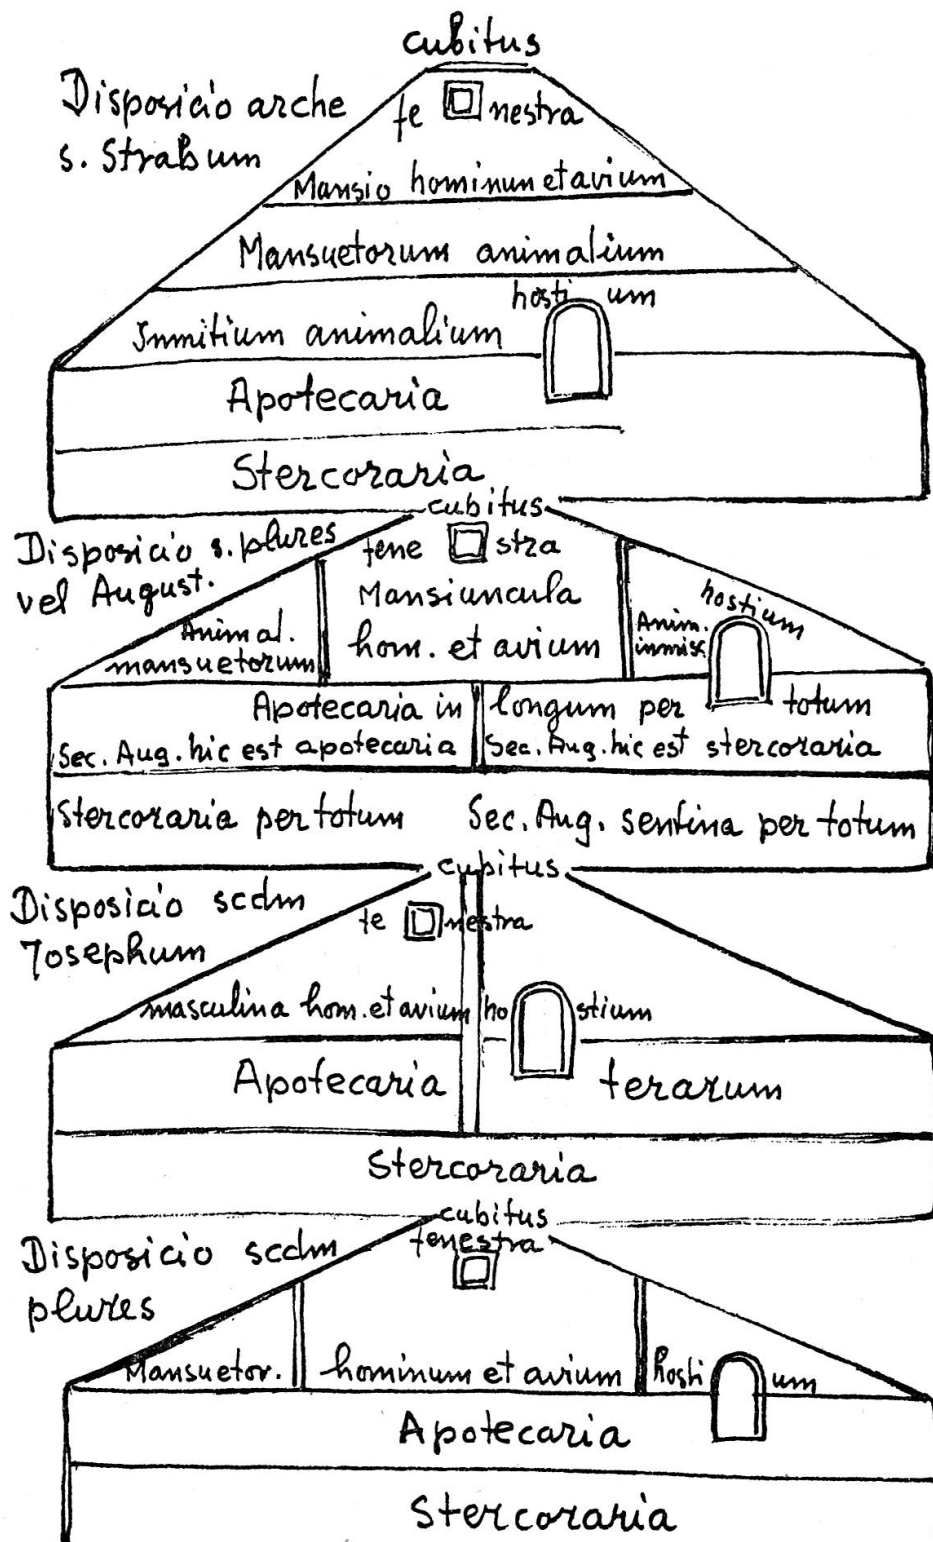 cubitus
Disposicio arche
s. Strabum
fenestra
Mansio hominun et avium
Mansuetorum animalium
hostium
Inmitium animalium
Apotecaria
Stercoraria
cubitus
Disposicio s. plures
vel August.
fenestra
Mansiuncula
hom. et avium
Animal.
mansuetorum
hostium
Anim.
inmisc.
Apotecaria in longum per totum
Sec. Aug. hic est apotecaria Sec. Aug. hic est stercoraria
Stercoraria per totum Sec. Aug. sentina per totum
cubitus
Disposicio scdm
Josephum
fenestra
masculina hom. et avium hostium
Apotecaria ferarum
Stercoraria
cubitus
fenestra
Disposicio scdm
plures
Mansuetor. hominum et avium hostium
Apotecaria
Stercoraria